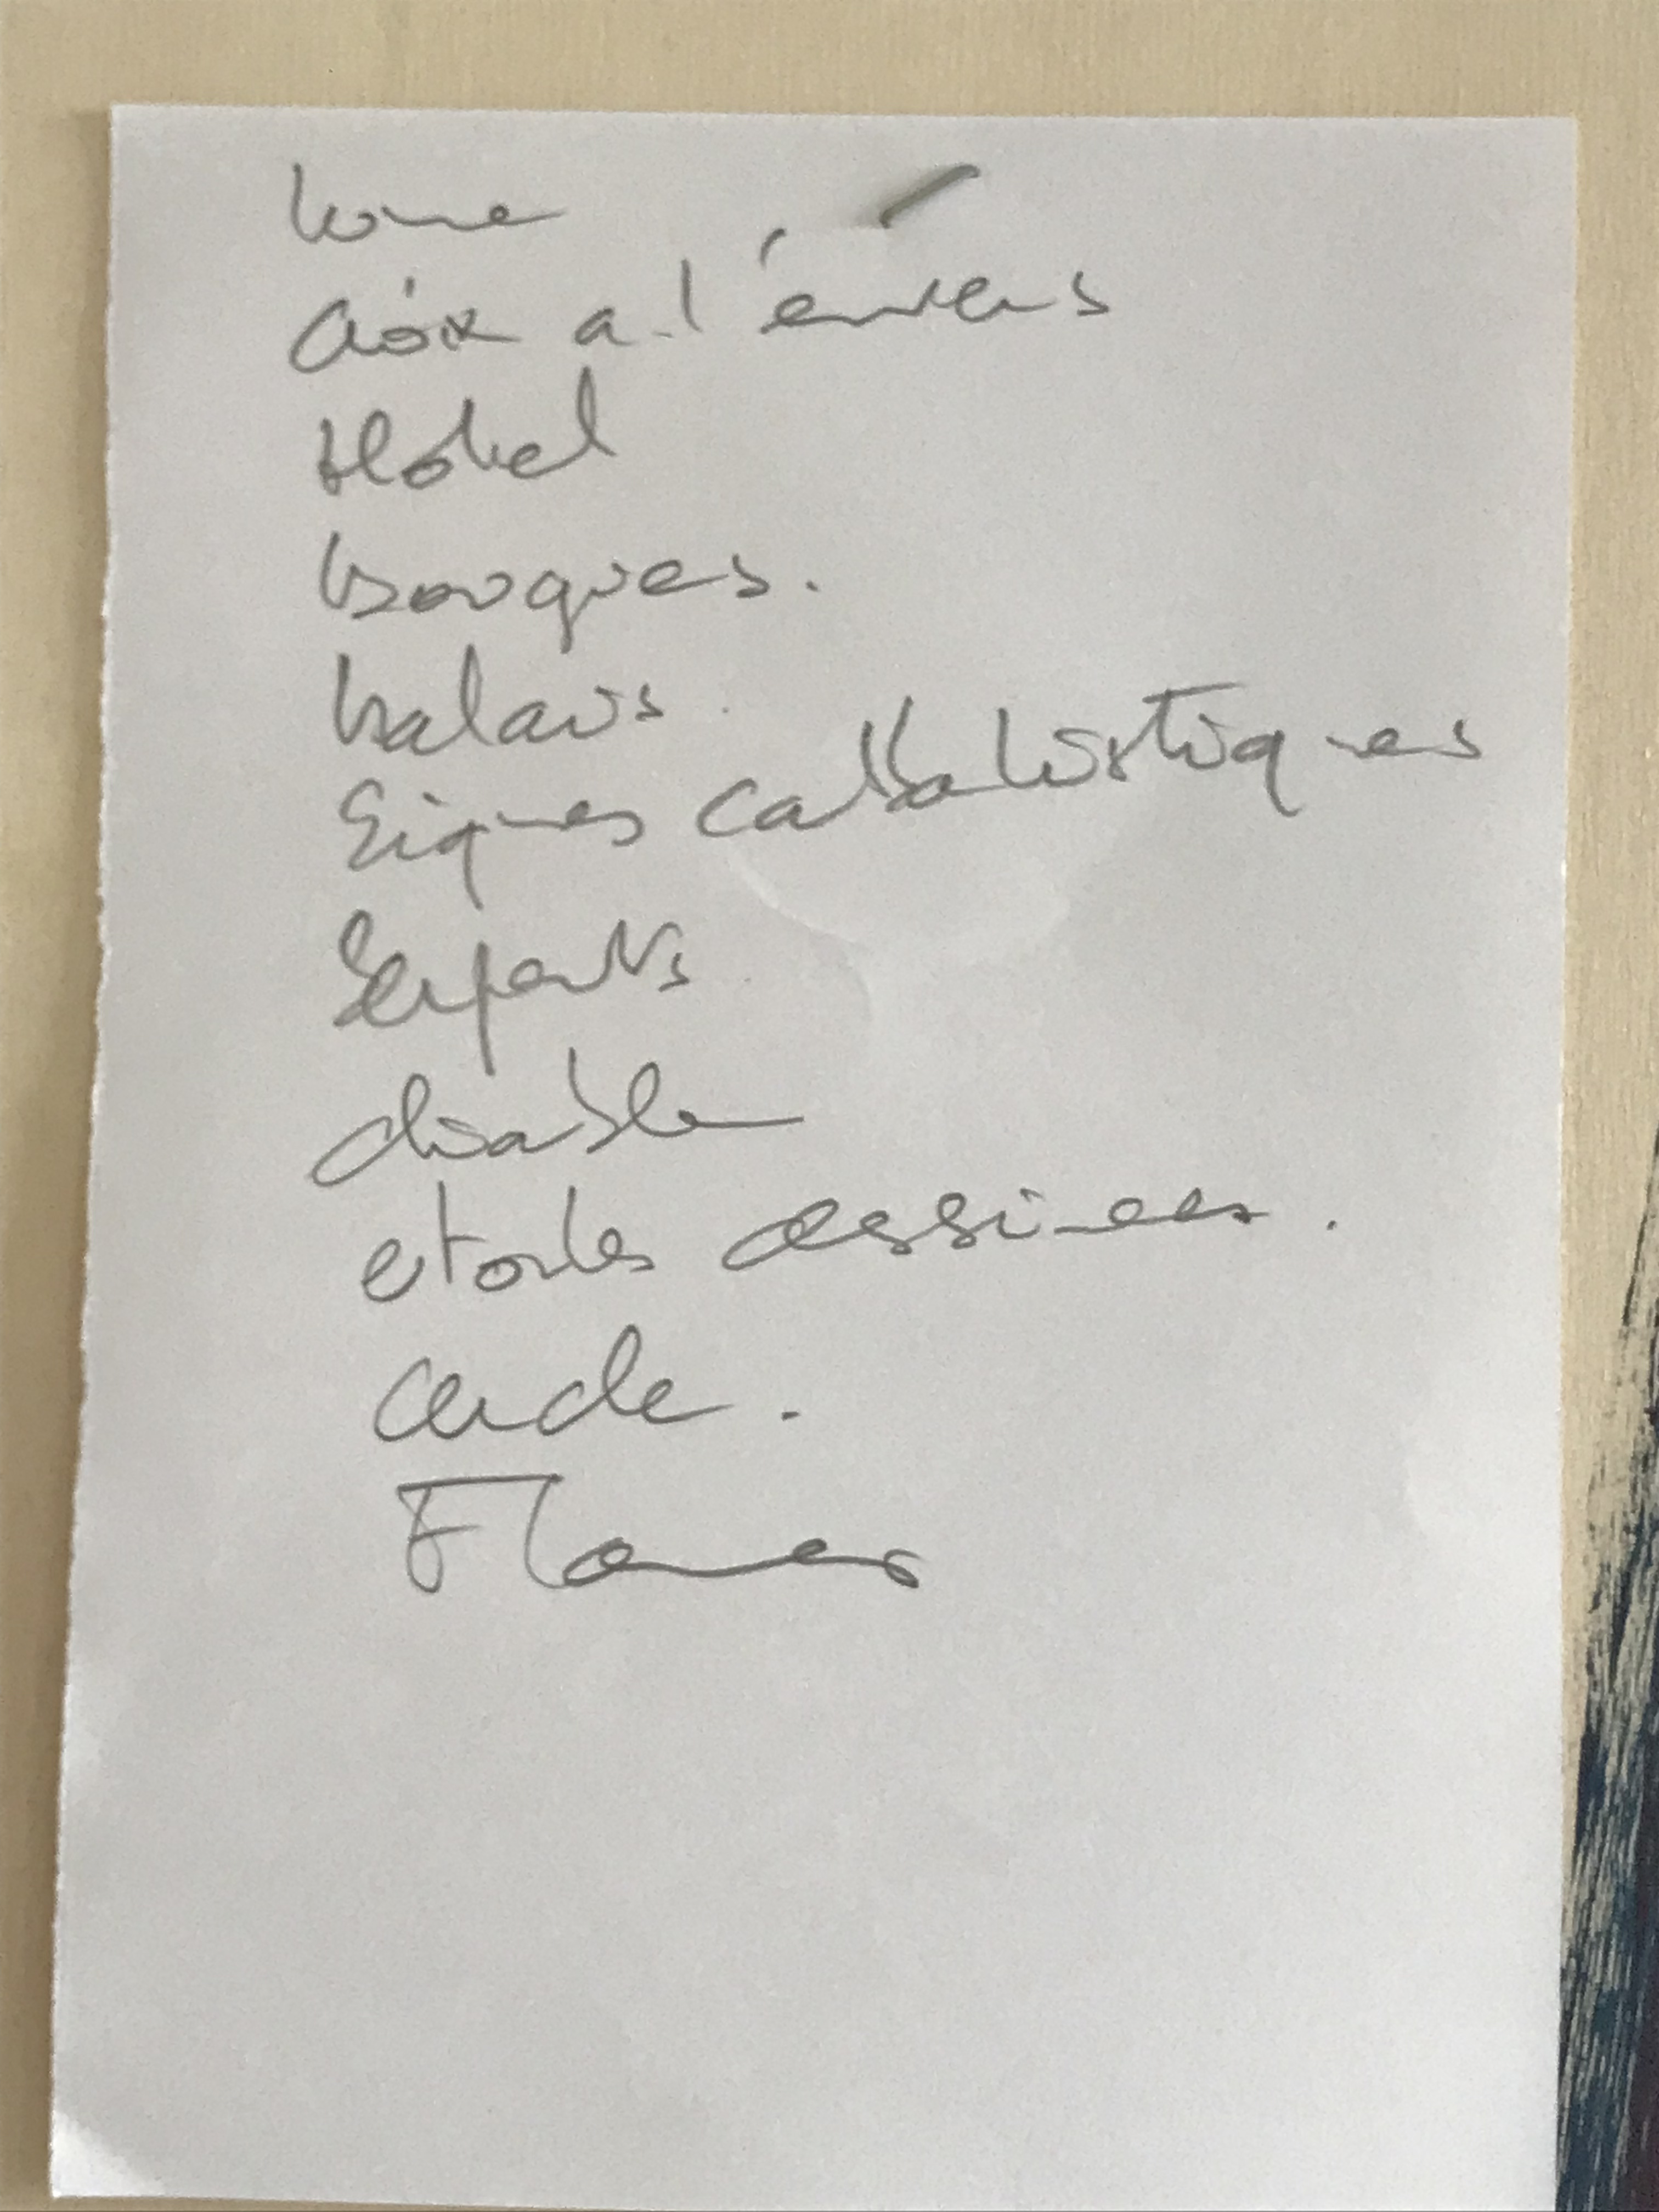 lune
croix a l'envers
Hotel
bougies.
balais
Signes cabbalistiques
Serpents
diable
etoiles dessinees.
cercle.
Flames